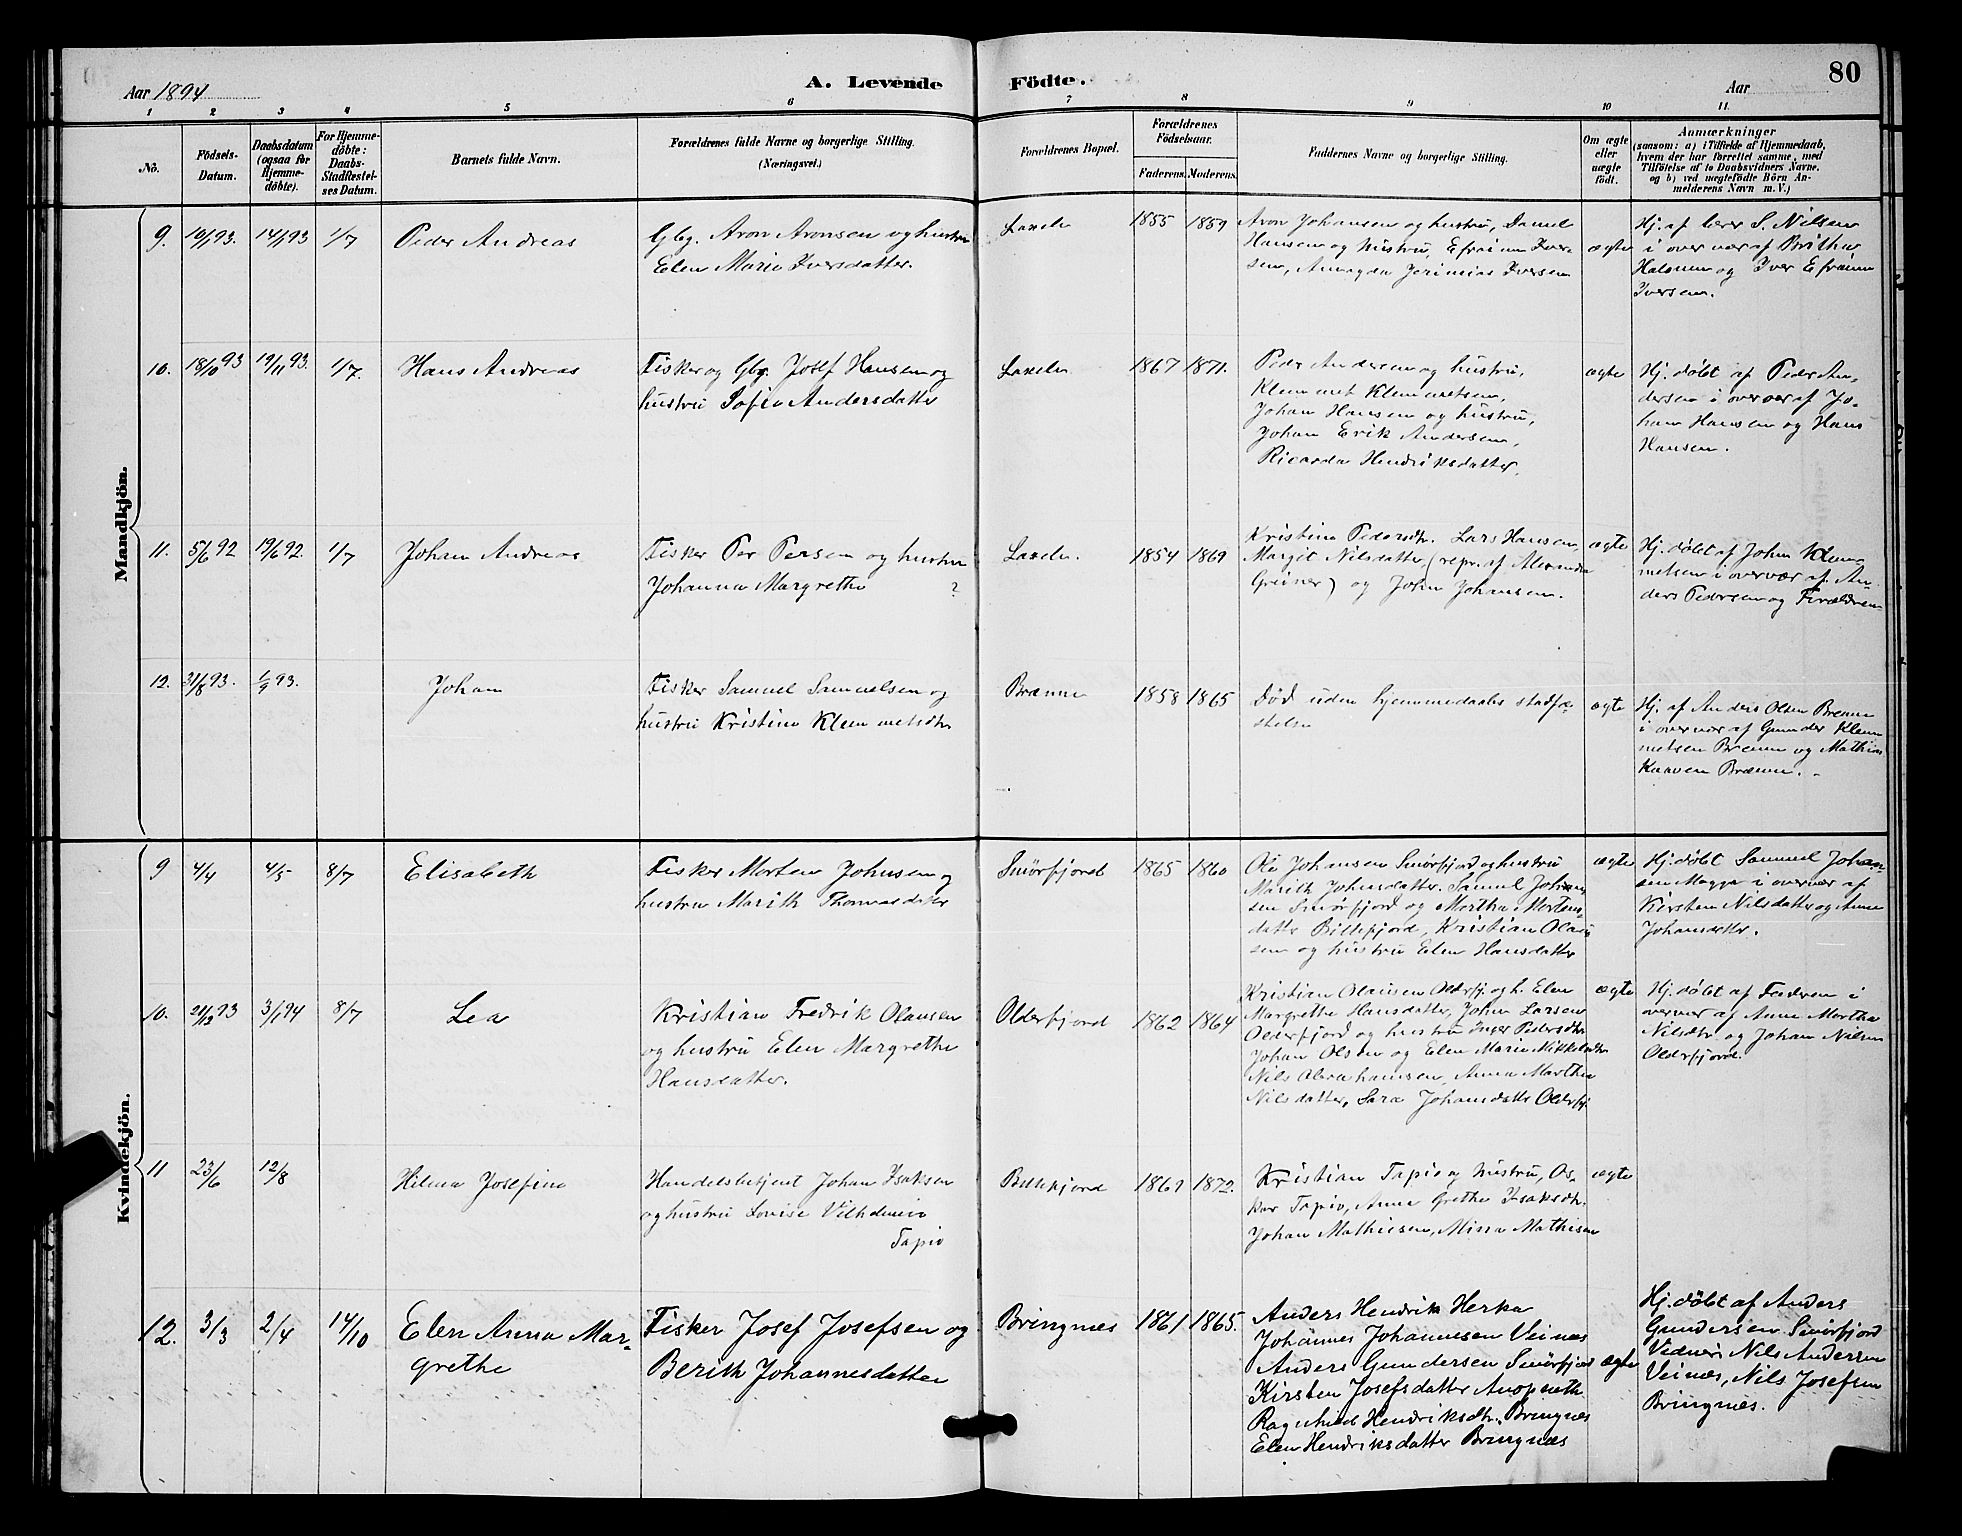 Aar 1894
A. Levende
Födte.
Aar
80
1 2 3 4 5 6 7 8 9 10 11.
No.
Födsels-
Datum.
Daabsdatum
(ogsaa for
Hjemme-
döbte).
For Hjemme-
döbte:
Daabs-
Stadfæstel-
ses Datum.
Barnets fulde Navn.
Forældrenes fulde Navne og borgerlige Stilling.
(Næringsvei.)
Forældrenes Bopæl.
Forældrenes
Födselsaar.
Faderens.
Moderens.
Faddernes Navne og borgerlige Stilling.
Om ægte
eller
uægte
födt.
Anmærkninger
(saasom: a) i Tilfælde af Hjemmedaab,
hvem der har forrettet samme, med
Tilföielse af to Daabsvidners Navne.
og b) ved uægtefödte Börn An-
melderens Navn m. V.)
Mandkjön.
9. 93. 14/1 93 1/7
Peder Andreas
Gbg. Aron Aronsen og hustru
Elen Marie Iversdatter.
Laxelv
1855 1859
Aron Johansen og hustru, Daniel
Hansen og hustru, Efraim Iver-
sen, Jerimias Iversen
ægte
Hj. af lærer S. Nilsen
i overvær af Brita
Halonen og Iver Efraim
Iversen.
10. 18/10 93 19/11 93. 1/7.
Hans Andreas
Fisker og Gbg. Josef Hansen og
hustru Sofie Andersdatter
Laxelv
1867 1871.
Peder Andersen og hustru,
Klemmet Klemmetsen,
Johan Hansen og hustru,
Johan Erik Andersen,
Ricarda Hendriksdatter.
ægte
Hj. döbt af Peder An-
dersen i overvær af Jo-
han Hansen og Hans
Hansen.
11. 5/6 92 19/6 92. 1/7
Johan Andreas
Fisker Per Persen og hustru
Johanna Margrethe ?
Laxelv.
1854 1869
Kristine Pedersdtr. Lars Hansen,
Margit Nilsdatter, (repr. af Alexandra
Greiner) og John Johansen.
ægte
Hj. döbt af John Klem-
metsen i overvær af An-
ders Pedersen og Forældren
12. 31/8 93. 1/9 93.
Johan
Fisker Samuel Samuelsen og
hustru Kristine Klemmetsdtr
Brænne
1858 1865
Död uden hjemmedaabs stadfæ-
stelse
ægte
Hj. af Anders Olsen Brenne
i overvær af Gunder Klem
metsen Brænne og Mathias
Kaaven Brænne.
Kvindekjön.
9 4/4 4/5 8/7
Elisabeth
Fisker Morten Johnsen og
hustru Marith Thomasdatter
Smörfjord
1865 1860
Ole Johansen Smörfjord og hustru
Marith Johnsdatter. Samul Johan
sen Smörfjord og Martha Mortens-
datter Billefjord, Kristian Olau
sen og hustru Elen Hansdatter
ægte
Hj. döbt Samuel Johan-
sen Magga i overvær af
Kirsten Nilsdatter og Anne
Johansdatter.
10. 21/12 93 3/1 94 8/7
Lea
Kristian Fredrik Olausen
og hustru Elen Margrethe
Hansdatter.
Olderfjord
1862 1864
Kristian Olausen Olderfj. og h. Elen
Margrethe Hansdatter, John Larsen
Olderfjord og hustru Inger Pedersdtr
Johan Olsen og Elen Marie Mikkelsdtr
Nils Abrahamsen, Anna Martha
Nilsdatter, Sara Johansdatter Olderfj.
ægte
Hj. döbt af Faderen i
overvær af Anne Martha
Nilsdtr. og Johan Nilsen
Olderfjord.
11 23/6 12/8
Hilma Josefine
Handelsbetjent Johan Isaksen
og hustru Lovise Vilhelmine
Tapio
Billefjord
1869 1872.
Kristian Tapio og hustru, Os-
kar Tapio, Anne Grethe Isaksdtr.
Johan Mathiesen, Minna Mathisen
ægte
12. 3/3 2/4 14/10
Elen Anna Mar-
grethe
Fisker Josef Josefsen og
Berith Johannesdatter
Bringnæs
1861 1865.
Anders Hendrik Herka
Johannes Johannesen Veinæs
Anders Gundersen Smörfjord
Kirsten Josefsdatter
Ragnhild Hendriksdtr. Bringnæs
Elen Hendriksdatter Bringnæs
ægte
Hj. döbt af Anders
Gundersen Smörfjord
Vidner: Nils Andersen
Veinæs, Nils Josefsen
Bringnæs.